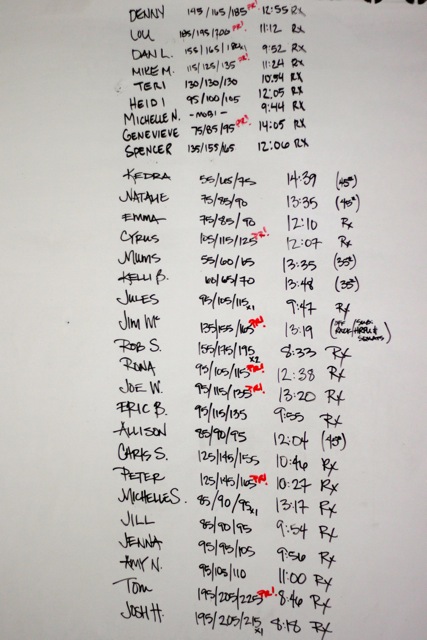 DENNY 145/165/185 PR! 12:55 RX
LOU 185/195/200 PR! 11:12 RX
DAN L. 155/165/ 9:52 RX
MIKE M. 115/125/135 PR! 11:24 RX
TERI 130/130/130 10:54 RX
HEIDI 95/100/105 12:05 RX
MICHELLE N. -MOBI- 9:44 RX
GENEVIEVE 75/85/95 PR! 14:05 RX
SPENCER 135/155/165 12:06 RX
KEDRA 55/65/75 14:39 (45#)
NATALIE 75/85/90 13:35 (45#)
EMMA 75/85/90 12:10 Rx
CYRUS 105/115/125 PR! 12:07 Rx
MUMS 55/60/65 13:35 (35#)
KELLI B. 60/65/70 13:48 (35#)
JULES 95/105/115 x1 9:47 Rx
JIM Mc 135/155/165 PR! 13:19 (OFF RACK/
ROB S. 155/175/195 x2 8:33 Rx
RONA 95/105/115 PR! 12:38 Rx
JOE W. 95/115/135 PR! 13:20 Rx
ERIC B. 95/115/135 9:55 Rx
ALLISON 85/90/95 12:04 (45#)
CARIS S. 125/145/155 10:46 Rx
PETER 125/145/165 PR! 10:27 Rx
MICHELLE S. 85/90/95 x1 13:17 Rx
JILL 85/90/95 9:54 Rx
JENNA 95/95/105 9:56 Rx
AMY N. 95/105/110 11:00 Rx
TOM 195/205/225 PR! 8:46 Rx
JOSH H. 195/205/215 x1 8:18 Rx